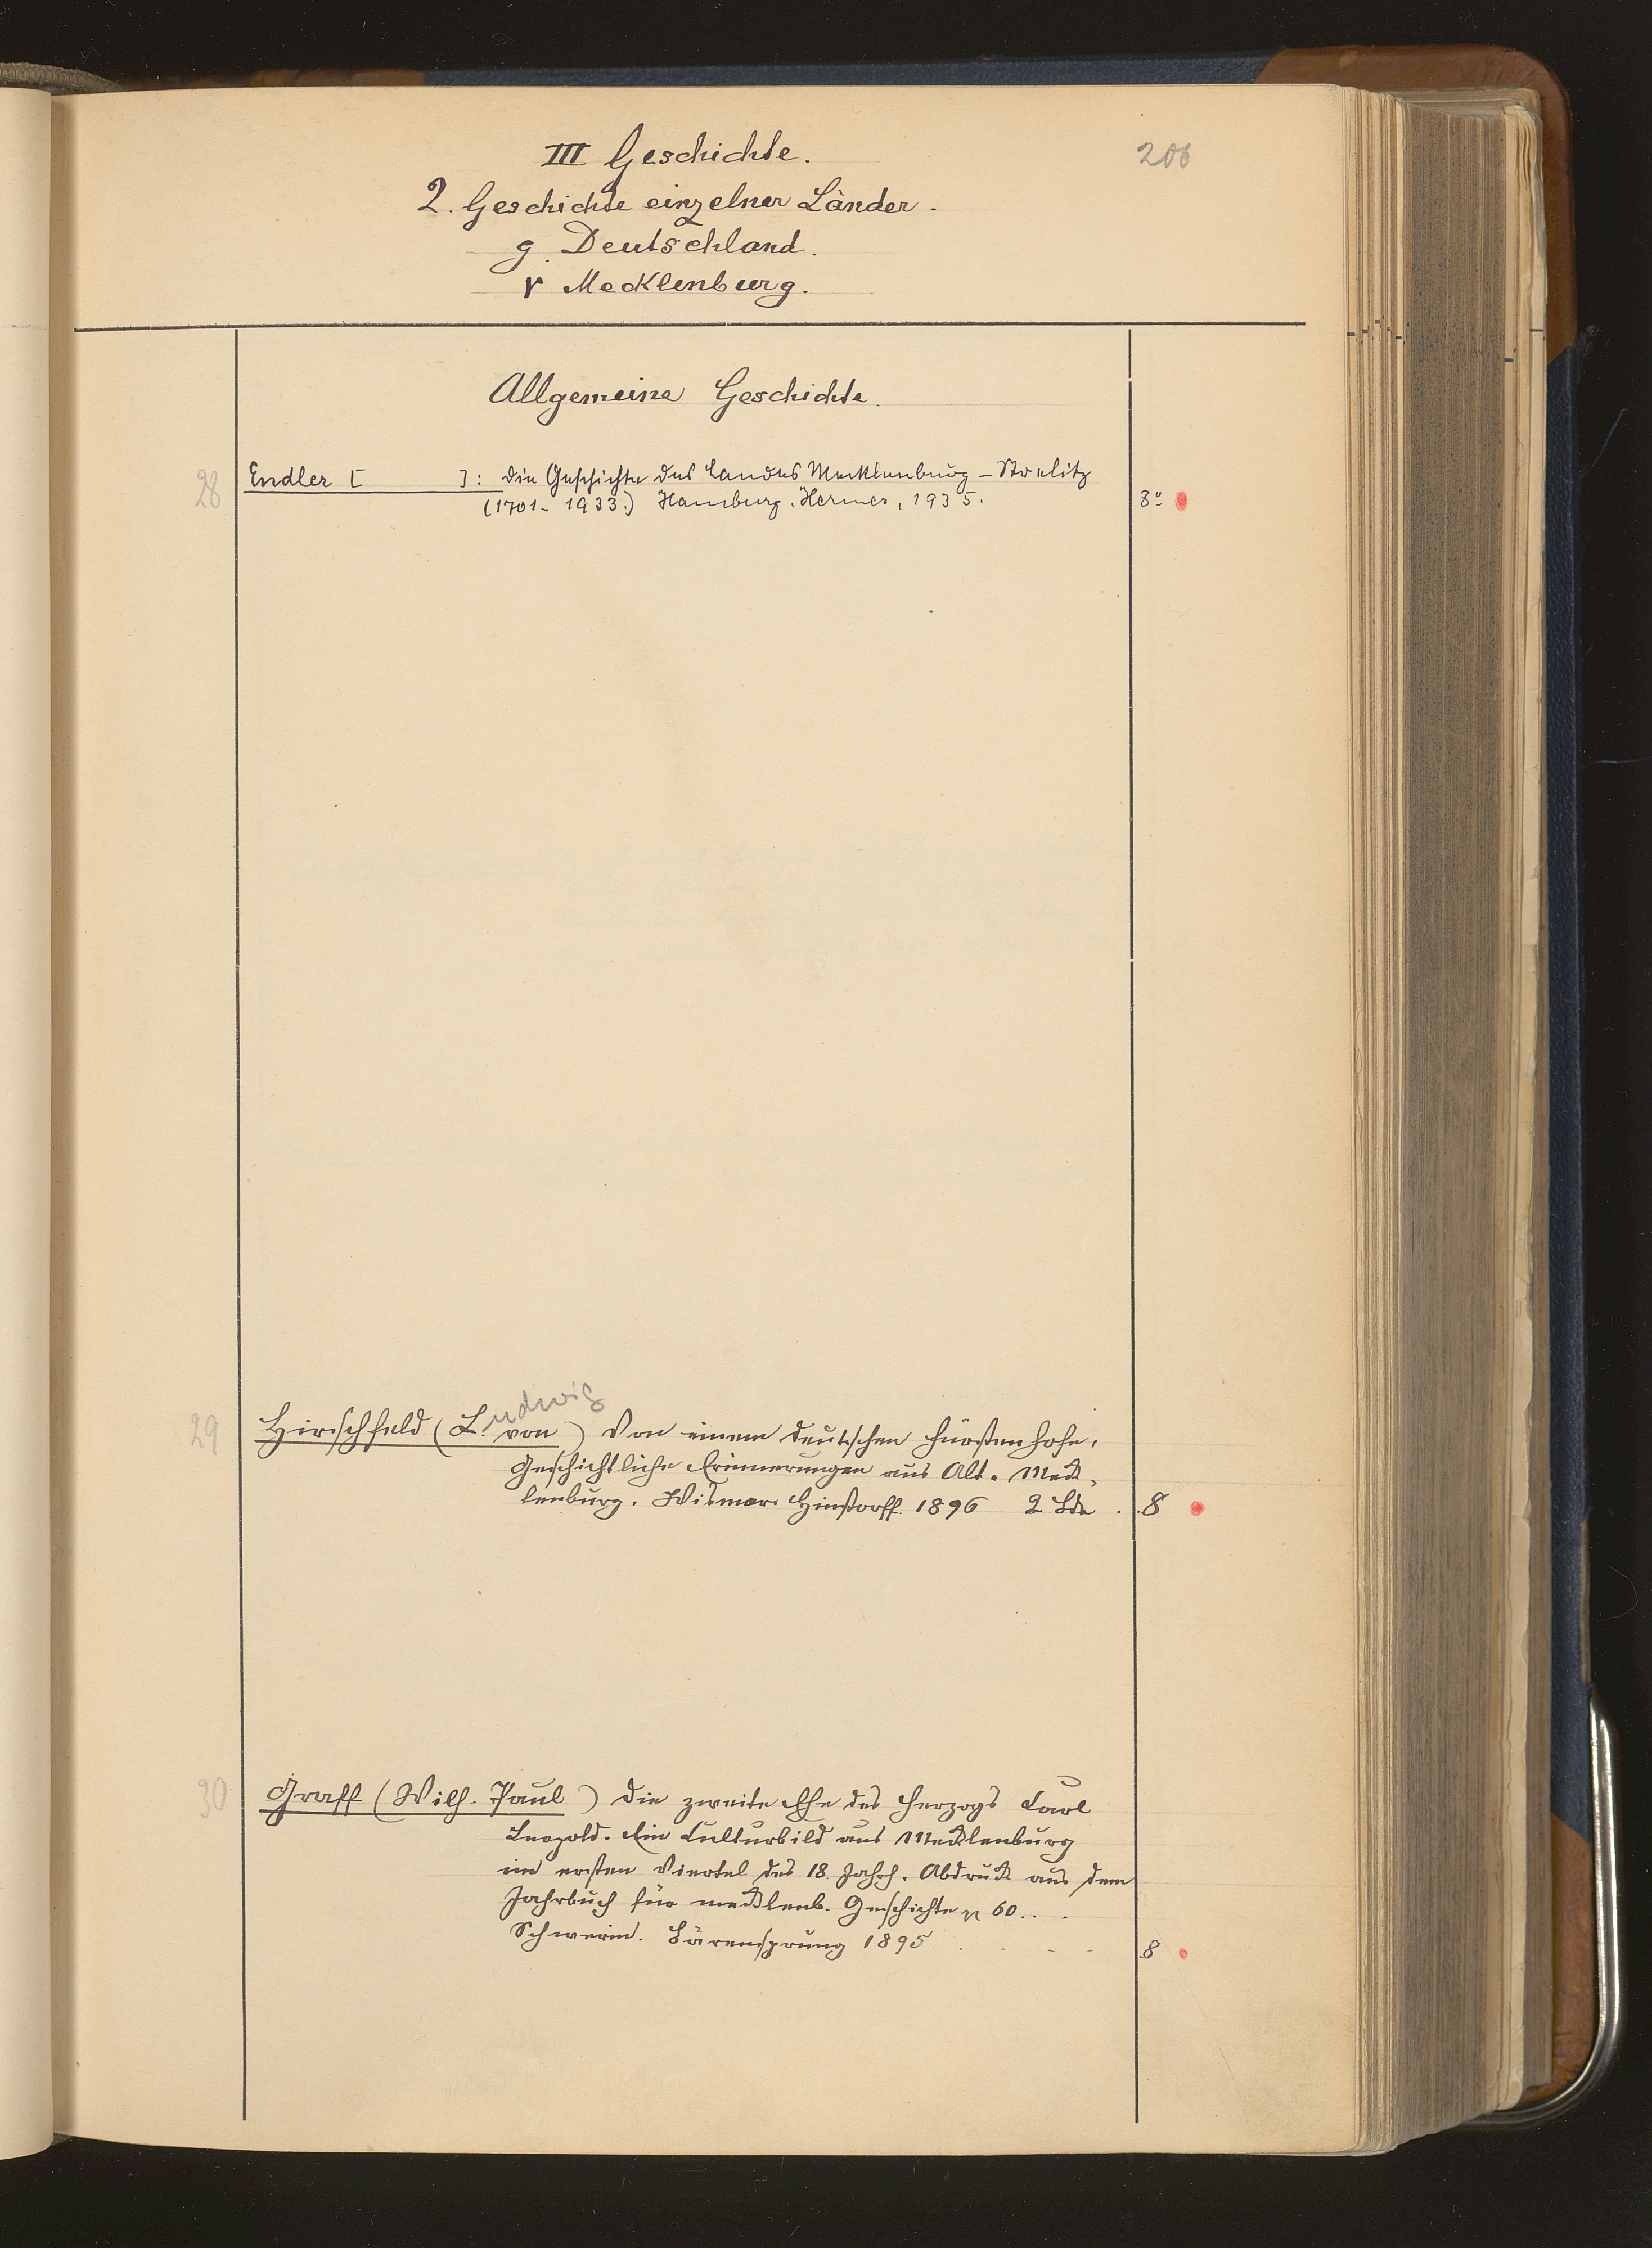 206
III Geschichte.
2. Geschichte einzelner Länder.
g. Deutschland.
r Mecklenburg.
Allgemeine Geschichte.
28 Endler [ ]: Die Geschichte des Landes Mecklenburg - Strelitz
(1701 - 1933.) Hamburg. Hermes, 1935. 8°
29 Hirschfeld (L. udwig von) Von einem deutschen Fürstenhofe.
Geschichtliche Erinnerungen aus Alt-Meck-
lenburg. Wismar. Hinstorff. 1896 2 Bde . . 8
30 Graff (Wilh. Paul) Die zweite Ehe des Herzogs Carl
Leopold. Ein Culturbild aus Mecklenburg
im ersten Viertel des 18. Jahrh. Abdruck aus dem
Jahrbuch für mecklenb. Geschichte 60 . . .
Schwerin. Bärensprung 1895 . . . . 8